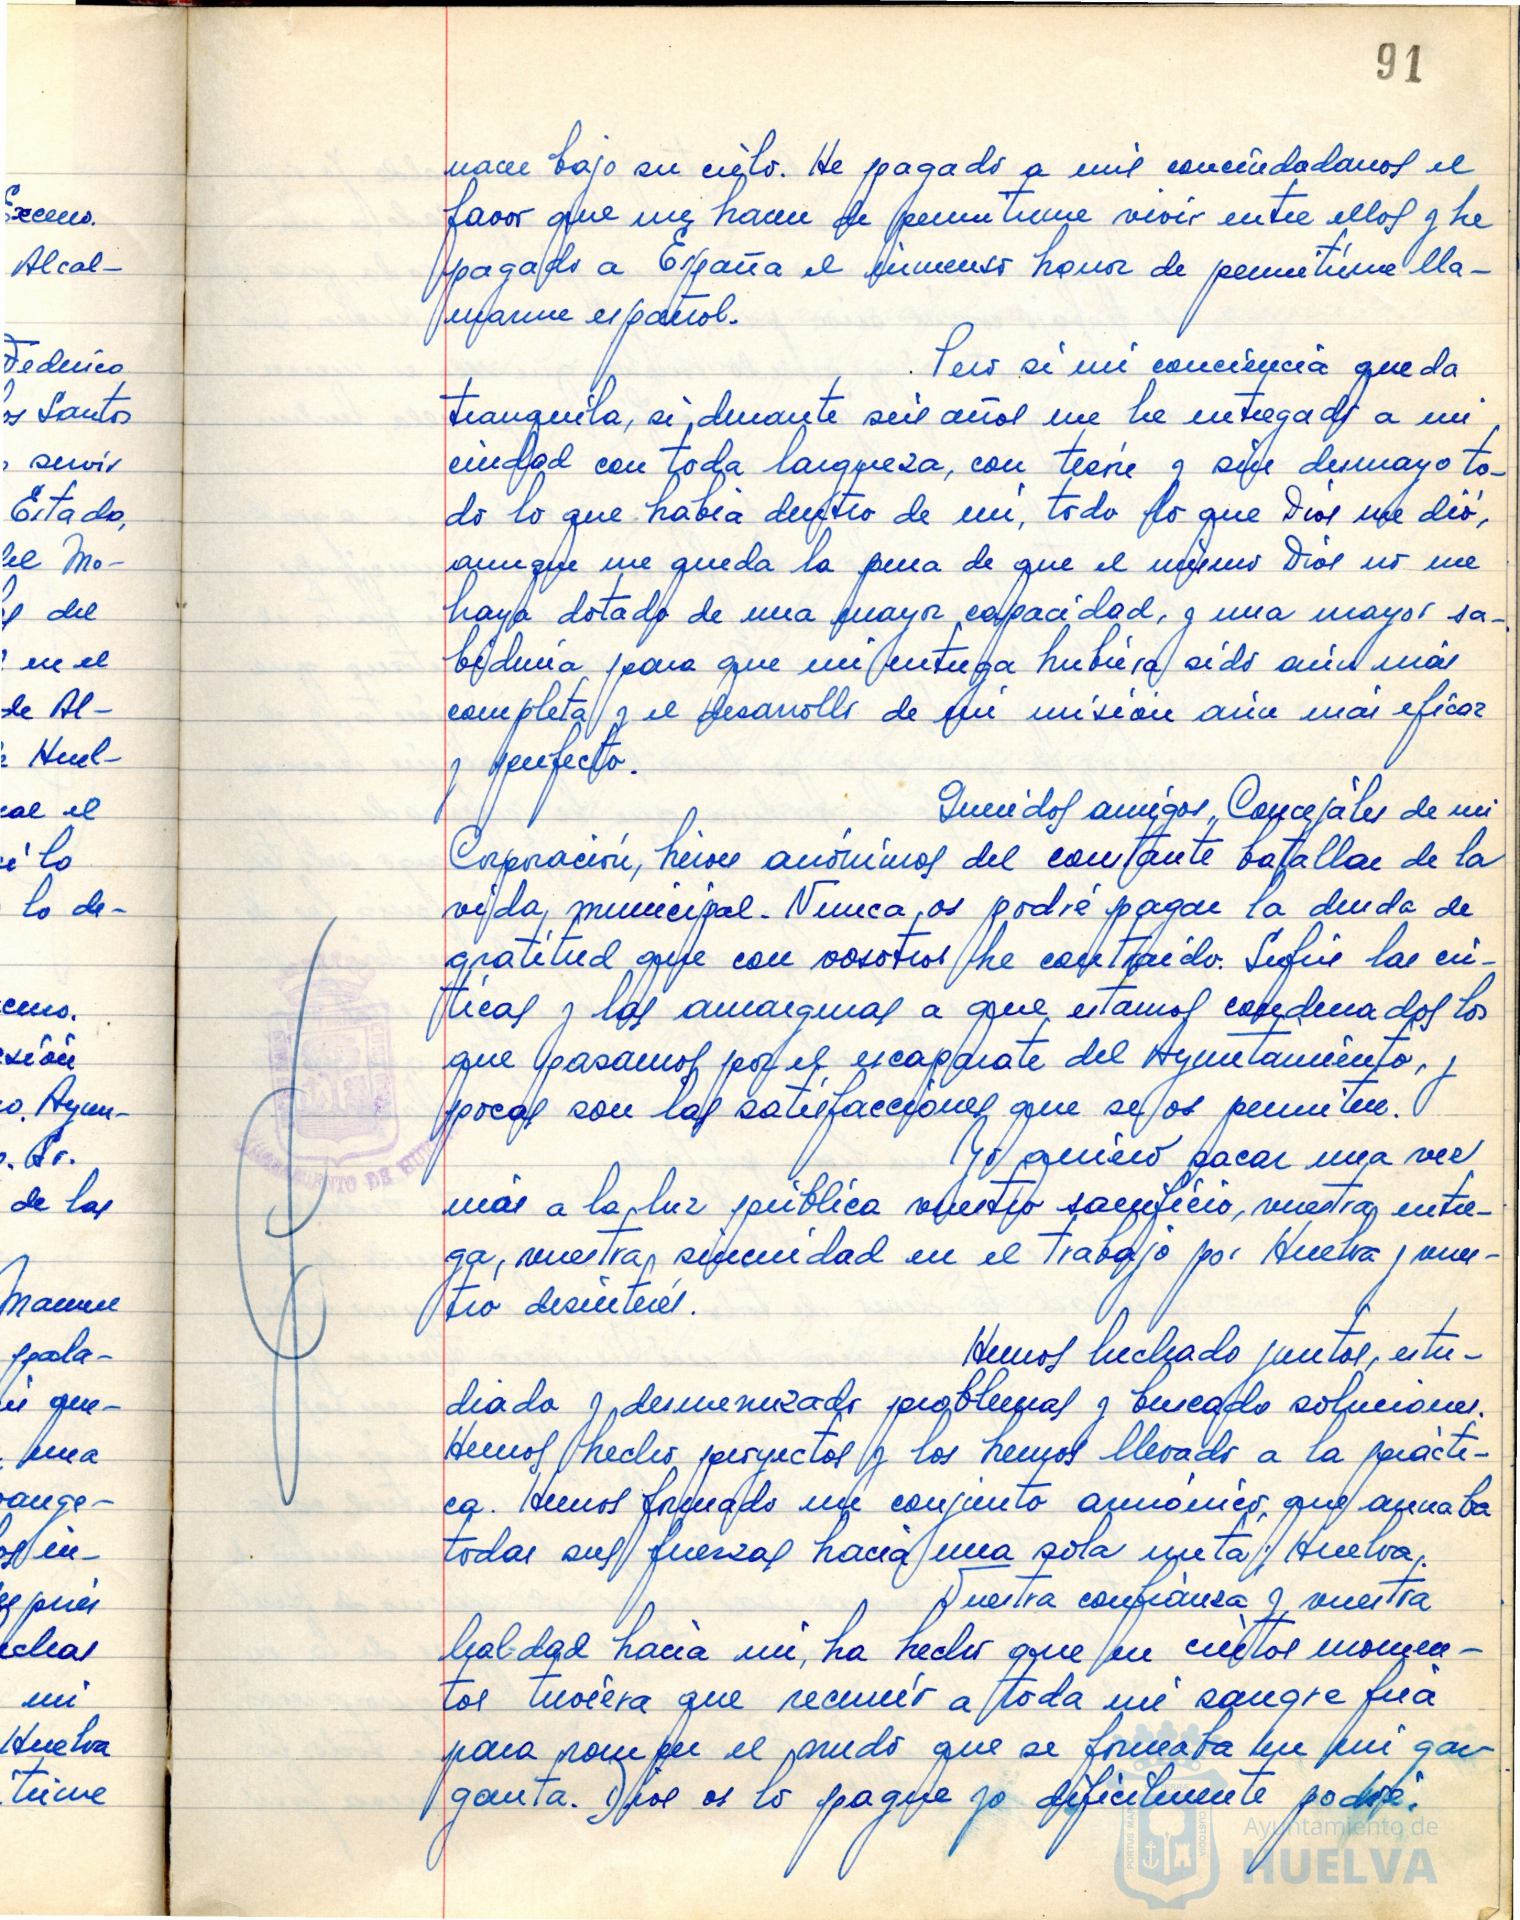 91
nacer bajo su cielo. He pagado a mis conciudadanos el
favor que me hacen de permitirme vivir entre ellos y he
pagado a España el inmenso honor de permitirme lla-
marme español.
Pero si mi conciencia queda
tranquila, si durante seis años me he entregado a mi
ciudad con toda largueza, con tesón y sin desmayo to-
do lo que había dentro de mí, todo lo que Dios me dió,
aunque me queda la pena de que el mismo Dios no me
haya dotado de una mayor capacidad, y una mayor sa-
biduría para que mi entrega hubiera sido aún más
completa y el desarrollo de mi misión aún más eficaz
y perfecto.
Queridos amigos, Concejales de mi
Corporación, héroes anónimos del constante batallar de la
vida municipal. Nunca os podré pagar la deuda de
gratitud que con vosotros he contraido. Sufrís las crí-
ticas y las amarguras a que estamos condenados los
que pasamos por el escaparate del Ayuntamiento, y
pocas son las satisfacciones que se os permiten.
Yo quiero sacar una vez
más a la luz pública vuestro sacrificio, vuestra entre-
ga, vuestra sinceridad en el trabajo por Huelva y vues-
tro desinterés.
Hemos luchado juntos, estu-
diado y desmenuzado problemas y buscado soluciones.
Hemos hecho proyectos y los hemos llevado a la prácti-
ca. Hemos formado un conjunto armónico que aunaba
todas sus fuerzas hacia una sola meta; Huelva.
Vuestra confianza y vuestra
lealdad hacia mi, ha hecho que en ciertos momen-
tos tuviera que recurrir a toda mi sangre fría
para romper el nudo que se formaba en mi gar-
ganta. Dios os lo pague yo difícilmente podré.
Excmo.
Alcal-
Federico
los Santos
servir
Estado,
del Mo-
del
en el
de Al-
Huel-
el
lo
lo de-
Ayun-
Sr.
de las
pala-
que-
una
después
mi
Huelva
AYUNTAMIENTO DE HUELVA
PORTUS MARIS
CUSTODIA
Ayuntamiento de
HUELVA